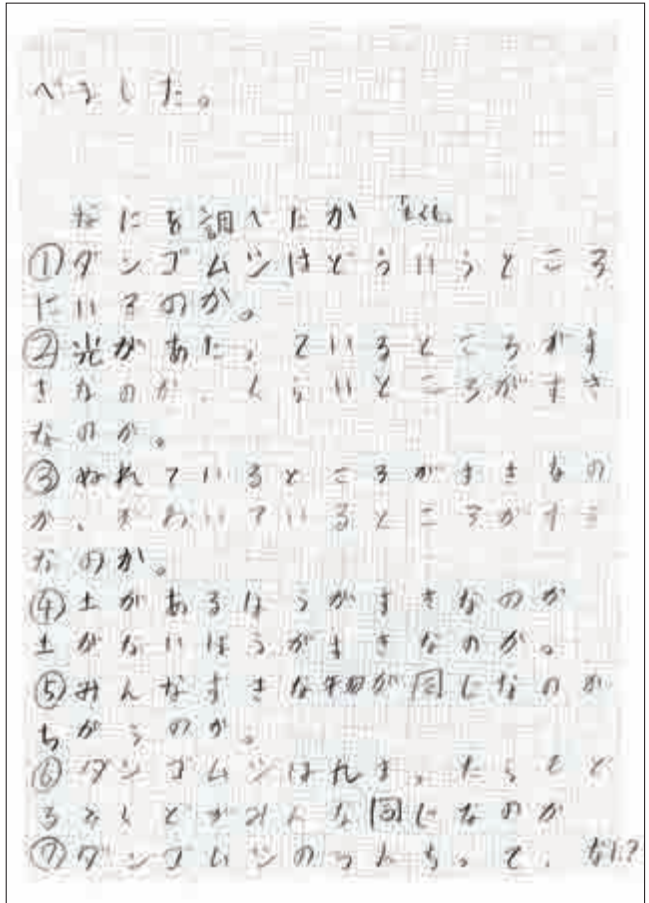 べました。
なにを調べたか
①ダンゴムシはどういうところ
にいるのか。
②光があたっているところがす
きなのか、くらいところがすき
なのか。
③ぬれているところがすきなの
か、かわいているところがすき
なのか。
④土があるほうがすきなのか
土がないほうがすきなのか。
⑤みんなすきな物が同じなのか
ちがうのか。
⑥ダンゴムシはれ
みんな同じなのか
⑦ダンゴムシのうんちって、なに?